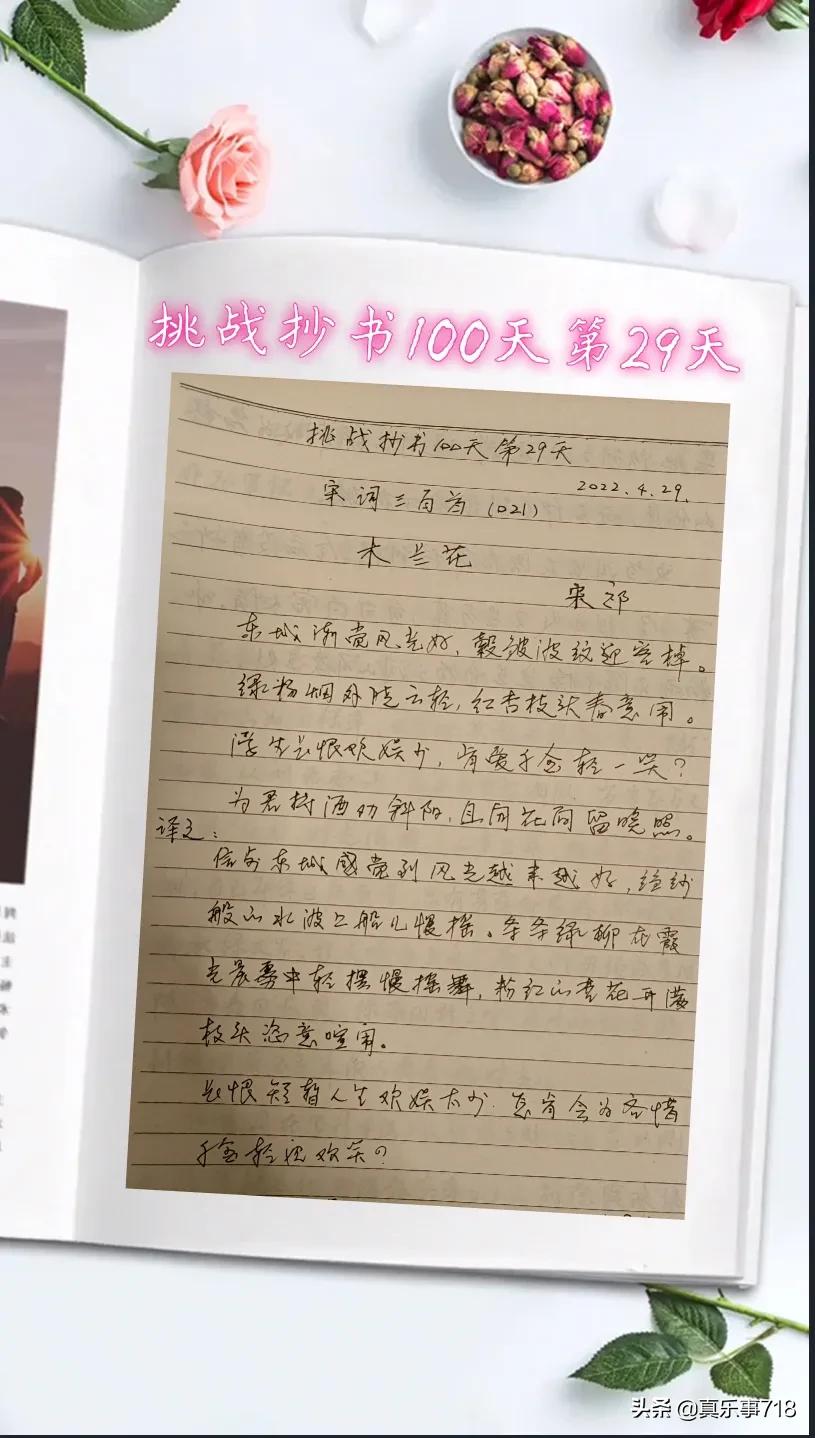 挑战抄书100天第29天
挑战抄书100天第29天
2022.4.29.
宋词三百首(021)
木兰花
宋祁
东城渐觉风光好,縠皱波纹迎客棹。
绿杨烟外晓云轻,红杏枝头春意闹。
浮生长恨欢娱少,肯爱千金轻一笑?
为君持酒劝斜阳,且向花间留晚照。
译文:
信步东城感觉到风光越来越好,绉纱
般的水波上船儿慢摇。条条绿柳在霞
光晨雾中轻摆慢摇舞,粉红的杏花开满
枝头恣意喧闹。
长恨短暂人生欢娱太少,怎肯会为吝惜
千金轻视欢笑?
头条 @真乐事718